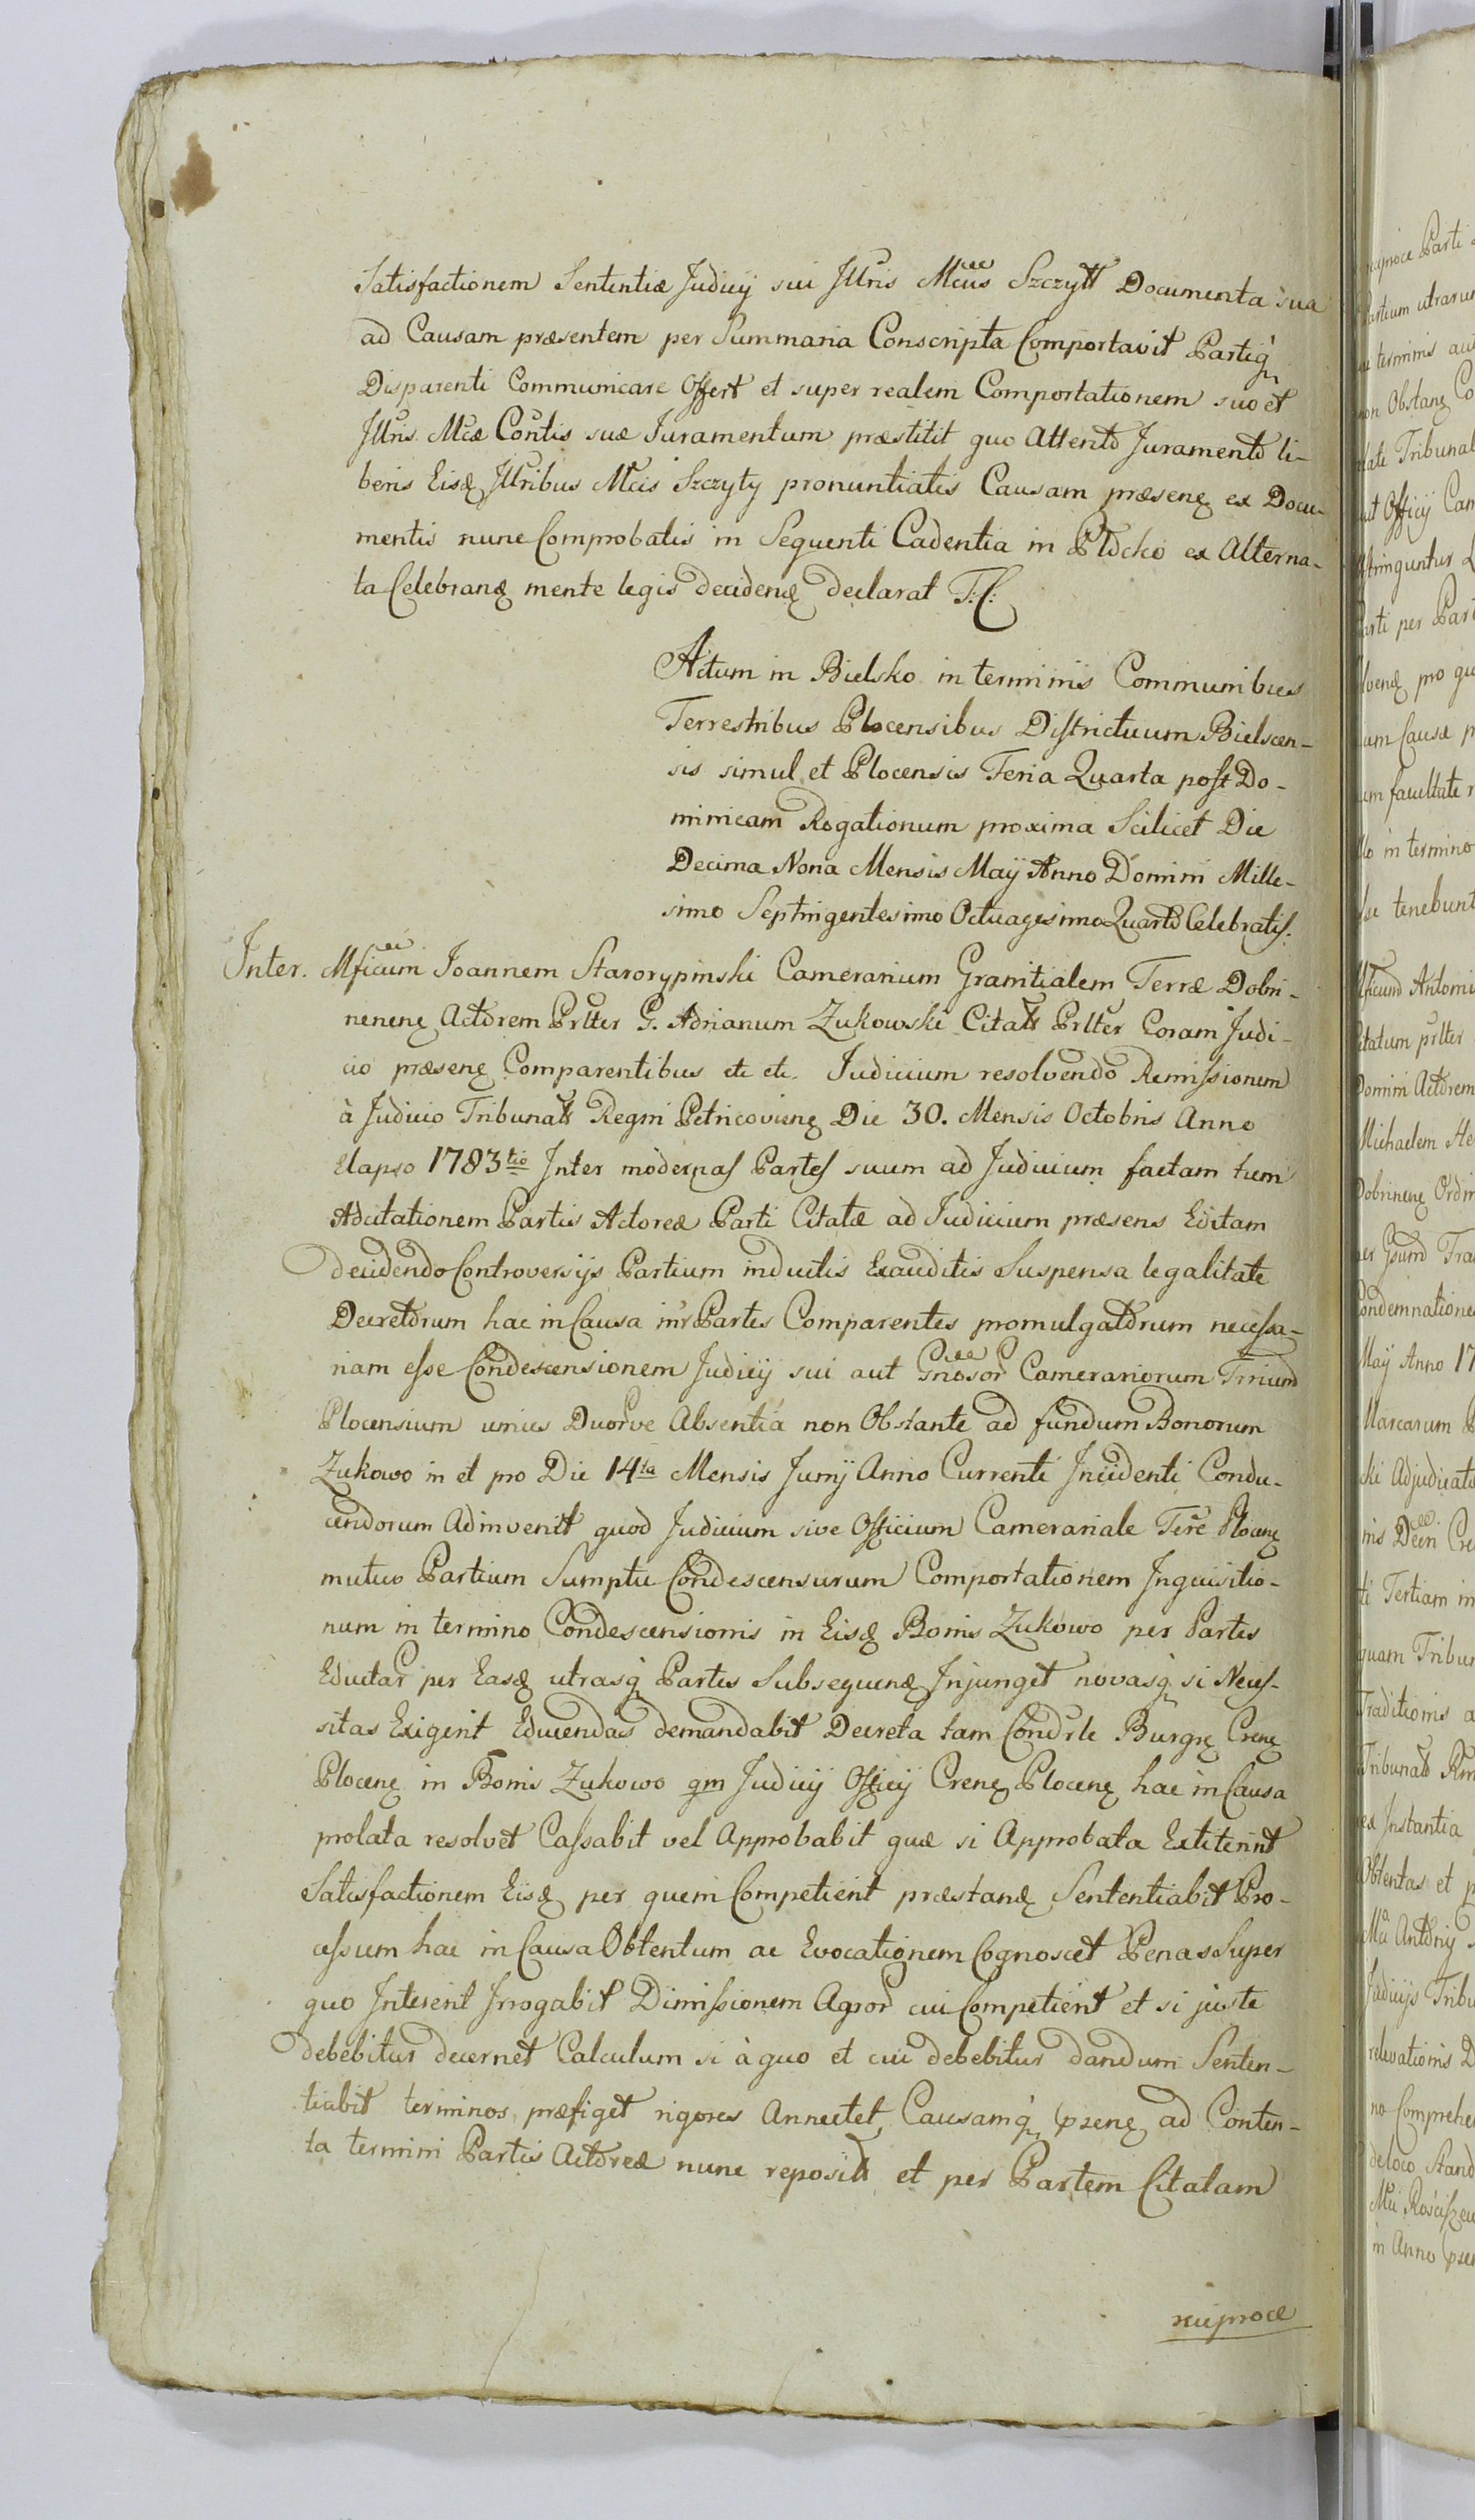 Satisfactionem Sententiæ Judicÿ sui Jllris Mcus Szczytt Documenta sua
ad Causam præsentem per Summaria Conscripta Comportavit Partiq̃
Disparenti Communicare Offert et super realem Comportationem suo et
Jllris Mcæ Contis suæ Juramentum præstitit quo Attento Juramento li-
beris Eisq Jllribus Mcis Szczyty pronuntiatis Causam præsenę ex Docu-
mentis nunc Comprobatis in Sequenti Cadentia in Płocko ex Alterna-
ta Celebranę mente legis decidenę declarat T: C:
Actum in Bielsko in terminis Communibus
Terrestribus Plocensibus Districtuum Bielscen-
sis simul et Plocensis Feria Quarta post Do-
minicam Rogationum proxima Scilicet Die
Decima Nona Mensis Maÿ Anno Domini Mille-
simo Septingentesimo Octuagesimo Quarto Celebratis.
Inter. Mficum Joannem Starorypinski Camerarium Granitialem Terræ Dobri-
nenenę Actorem Prlter G. Adrianum Zukowski Citatt Prlter Coram Judi-
cio præsenę Comparentibus etc etc. Judicium resolvendo Remissionem
à Judicio Tribunatt Regni Petricovienę Die 30. Mensis Octobris Anno
Elapso 1783tio Inter modernas Partes suum ad Judicium factam tum
Adcitationem Partis Actoreæ Parti Citatæ ad Judicium præsens Editam
decidendo Controversÿs Partium inductis Exauditis Suspensa legalitate
Decretorum hac in Causa inr Partes Comparentes promulgatorum necessa-
riam esse Condescensionem Judicÿ sui aut Gnosor Camerariorum Trium
Plocensium unius Duorve Absentiá non Obstante ad fundum Bonorum
Zukowo in et pro Die 14ta Mensis Junÿ Anno Currenti Incidenti Condu-
cendorum Adinvenit quod Judicium sive Officium Camerariale Terre Plocenę
mutuo Partium Sumptu Condescensurum Comportationem Inquisitio-
num in termino Condescensionis in Eisq Bonis Zukowo per Partes
Eductar per Easq utrasq̃ Partes Subsequenę Injunget novasq̃ si Neces-
sitas Exigerit Educendas demandabit Decreta tam Condrle Burgrę Crenę
Plocenę in Bonis Zukowo qm Judicÿ Officÿ Crenę Plocenę hac in Causa
prolata resolvet Cassabit vel Approbabit quæ si Approbata Extiterint
Satisfactionem Eisq per quem Competierit præstanę Sententiabit Pro-
cessum hac in Causa Obtentum ac Evocationem Cognoscet Penas Super
quo Intererit Irrogabit Dimissionem Agror cui Competierit et si juste
debebitur decernet Calculum si à quo et cui debebitur dandum Senten-
tiabit terminos præfiget rigores Annectet Causamq̃ prsenę ad Conten-
ta termini Partis Actoreæ nunc repositt et per Partem Citatam
reciproce